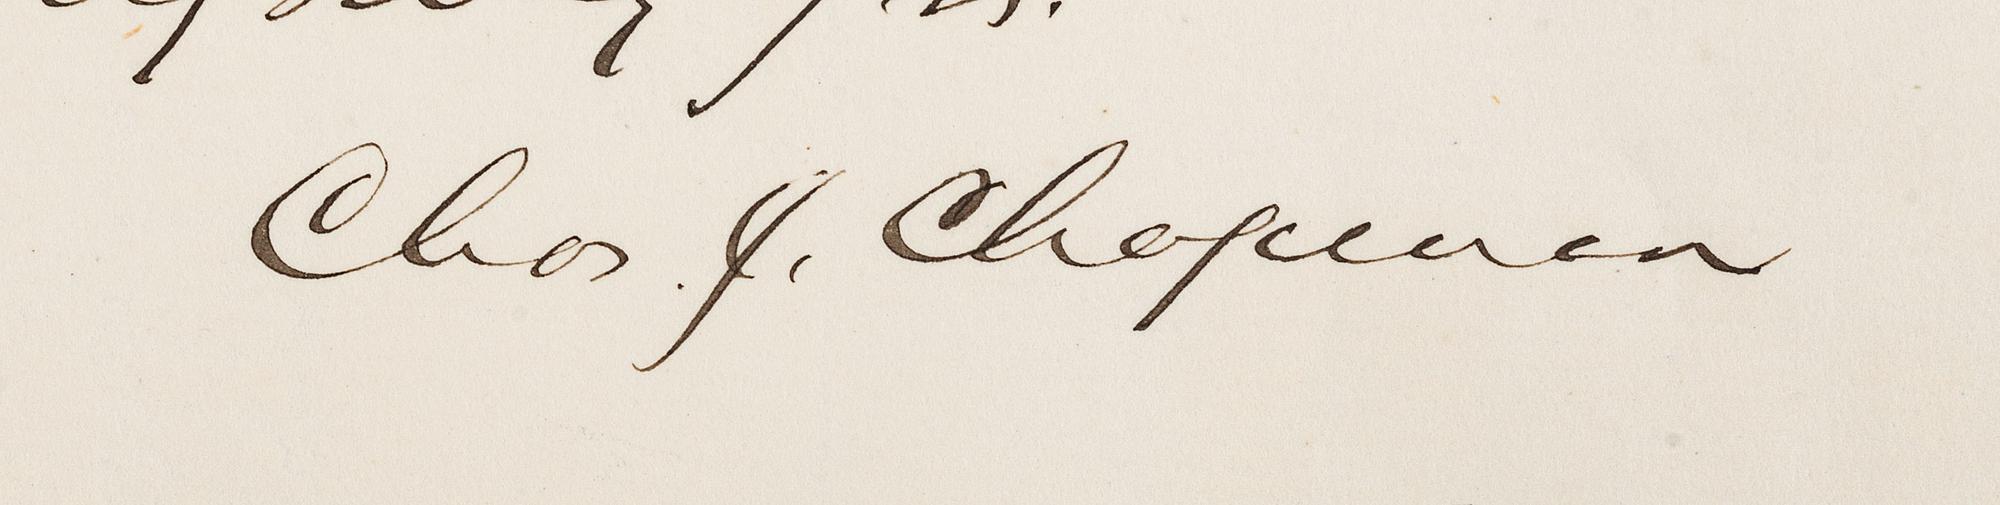 Chas. J. Chapman